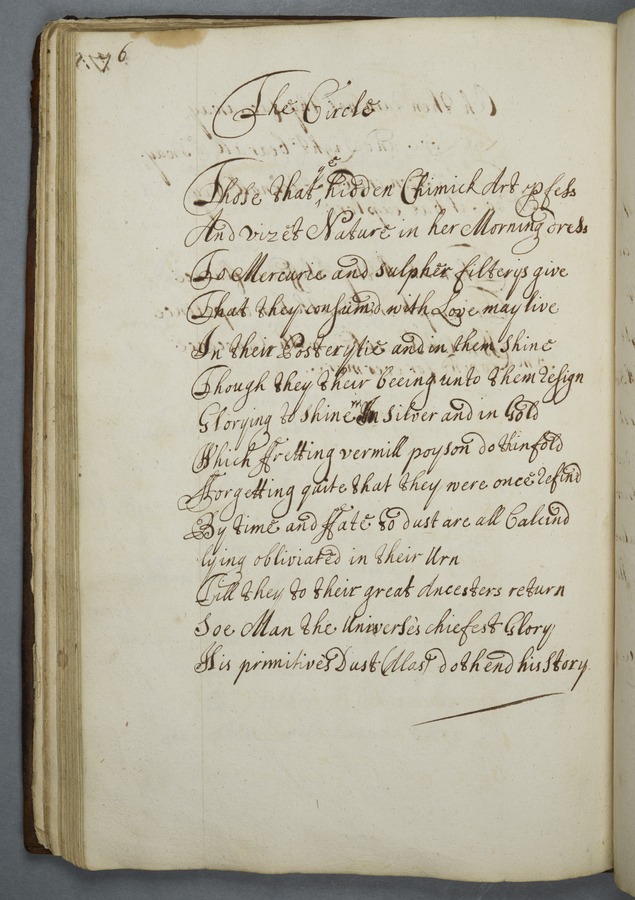 The Circle
Those that yᵉ hidden Chimick Art profess
And vizet Nature in her Morning dress
To Mercurie and sulpher filterys give
That they consum'd with Love may live
In their Posterytie and in them shine
Though they their beeing unto them resign
Glorying to shine in silver and in Gold
Which ffretting vermill poyson doth infold
fforgetting quite that they were once refin'd
By time and ffate to dust are all Calcin'd
lying obliviated in their Urn
Till they to their great Ancesters return
Soe Man the Universe's chiefest Glory
His primitive's Dust (Alas) doth end his Story